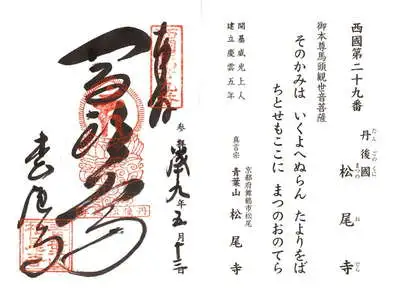 西國第二十九番
丹後國 松尾寺
たん ごの くに まつの お でら
御本尊馬頭観世音菩薩
そのかみは いくよへぬらん たよりをば
ちとせもここに まつのおのてら
京都府舞鶴市松尾
真言宗 青葉山 松尾寺
開基威光上人
建立慶雲五年
奉拝
参拝 平成十九年五月十二日
松尾寺